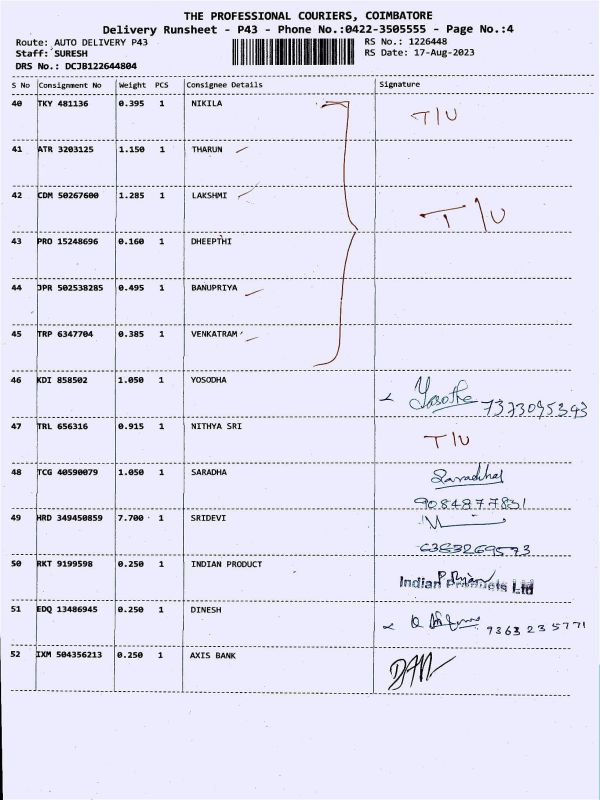 THE PROFESSIONAL COURIERS, COIMBATORE
Delivery Runsheet - P43 - Phone No.:0422-3505555 - Page No.:4
Route: AUTO DELIVERY P43 RS No.: 1226448
Staff: SURESH RS Date: 17-Aug-2023
DRS No.: DCJB122644804
S No Consignment No Weight PCS Consignee Details Signature
40 TKY 481136 0.395 1 NIKILA T/U
41 ATR 3203125 1.150 1 THARUN
42 CDM 50267600 1.285 1 LAKSHMI T/U
43 PRO 15248696 0.160 1 DHEEPTHI
44 JPR 502538285 0.495 1 BANUPRIYA
45 TRP 6347704 0.385 1 VENKATRAM
46 KDI 858502 1.050 1 YOSODHA Yasotha 7373095393
47 TRL 656316 0.915 1 NITHYA SRI T/U
48 TCG 40590079 1.050 1 SARADHA Saradhal
9084877831
49 HRD 349450859 7.700 1 SRIDEVI
6363269573
50 RKT 9199598 0.250 1 INDIAN PRODUCT Indian Products Ltd
51 EDQ 13486945 0.250 1 DINESH 9363235771
52 IXM 504356213 0.250 1 AXIS BANK